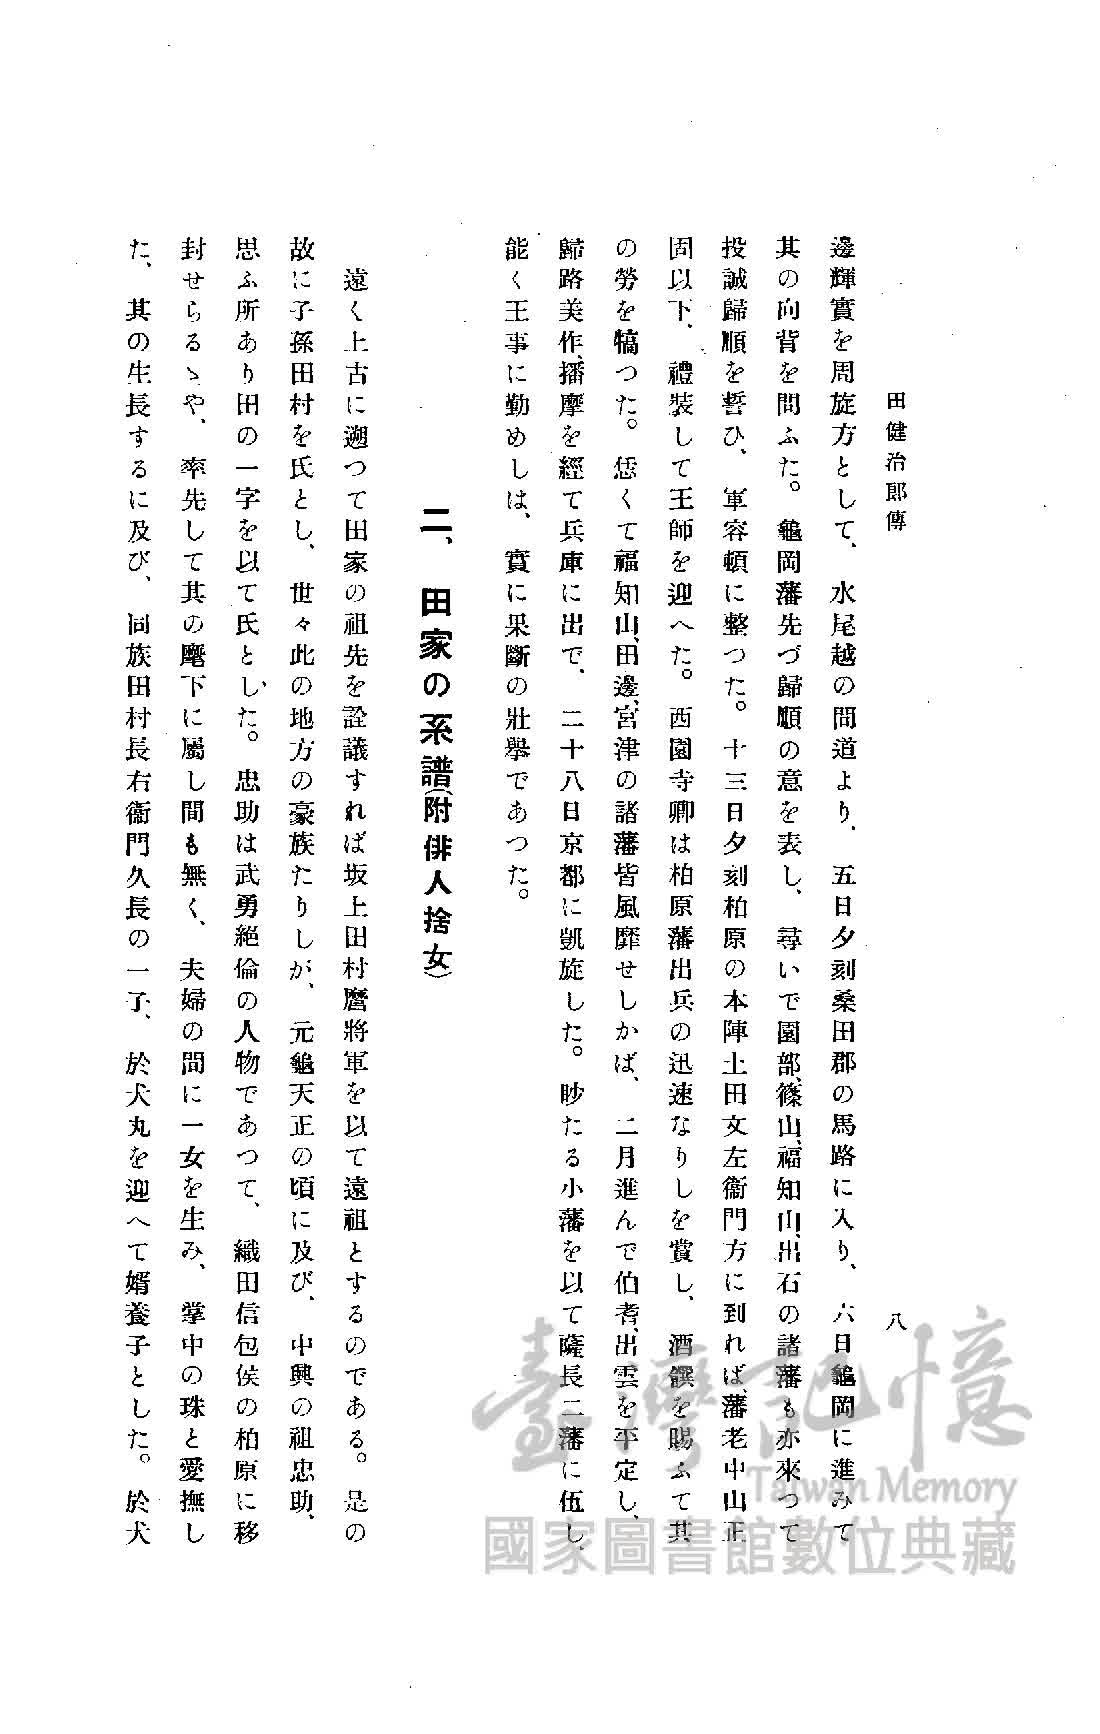 田健治郎傳
八
邊輝實を周旋方として、水尾越の間道より、五日夕刻桑田郡の馬路に入り、六日龜岡に進みて
其の向背を問ふた。龜岡藩先づ歸順の意を表し、尋いで園部、篠山、福知山、出石の諸藩も亦來つて
投誠歸順を誓ひ、軍容頓に整つた。十三日夕刻柏原の本陣土田文左衞門方に到れば、藩老中山正
固以下、禮裝して王師を迎へた。西園寺卿は柏原藩出兵の迅速なりしを賞し、酒饌を賜ふて其
の勞を犒つた。恁くて福知山、田邊、宮津の諸藩皆風靡せしかば、二月進んで伯耆、出雲を平定し、
歸路美作、播摩を經て兵庫に出で、二十八日京都に凱旋した。眇たる小藩を以て薩長二藩に伍し、
能く王事に勤めしは、實に果斷の壯擧であつた。
二、田家の系譜(附俳人捨女)
遠く上古に遡つて田家の祖先を詮議すれば坂上田村麿將軍を以て遠祖とするのである。是の
故に子孫田村を氏とし、世々此の地方の豪族たりしが、元龜天正の頃に及び、中興の祖忠助、
思ふ所あり田の一字を以て氏とした。忠助は武勇絕倫の人物であつて、織田信包侯の柏原に移
封せらるゝや、率先して其の麾下に屬し間も無く、夫婦の間に一女を生み、掌中の珠と愛撫し
た、其の生長するに及び、同族田村長右衞門久長の一子、於犬丸を迎へて婿養子とした。於犬
臺灣記憶
Taiwan Memory
國家圖書館數位典藏